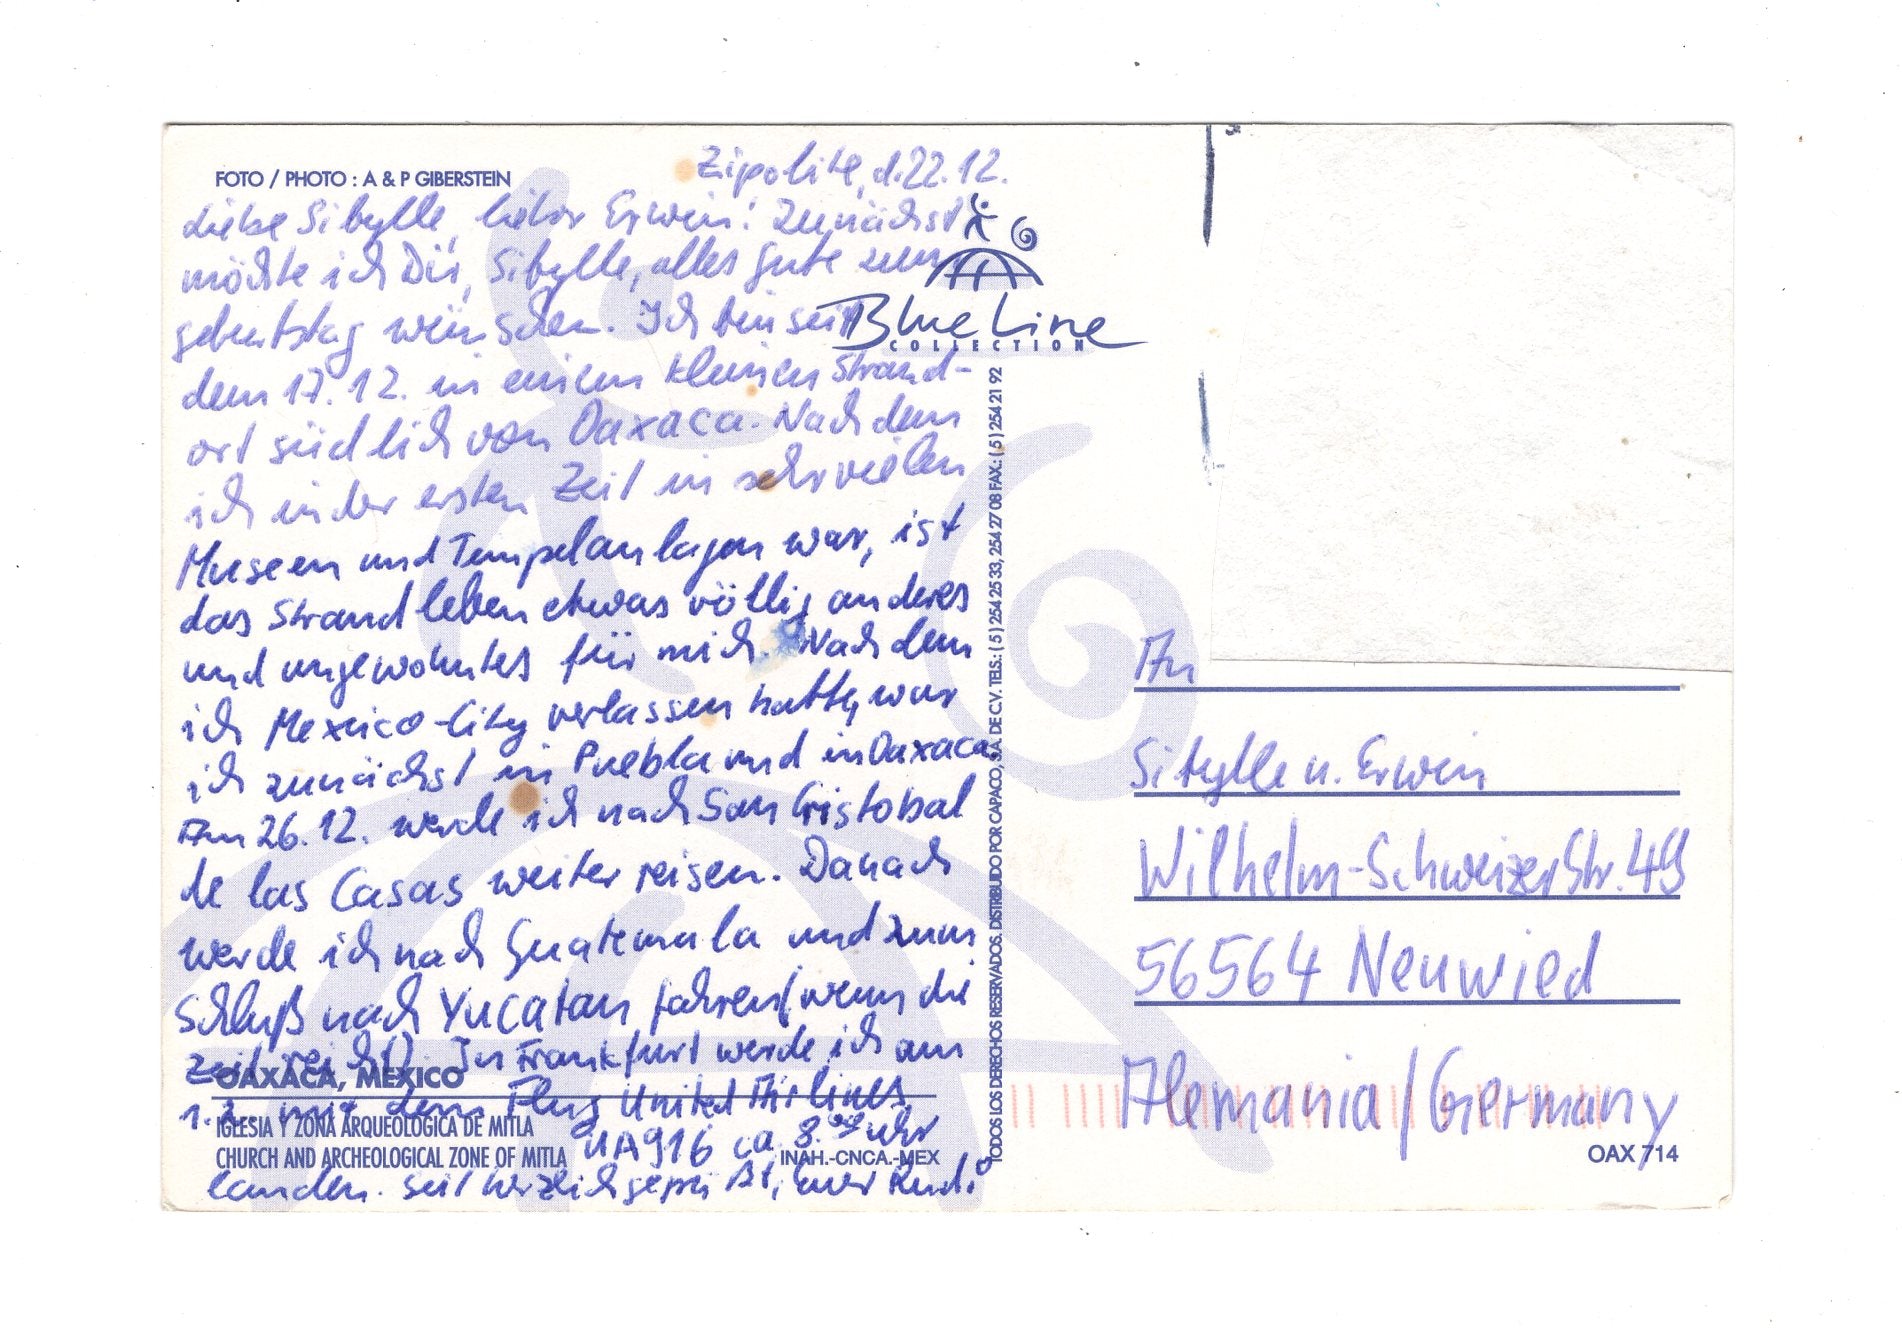 FOTO / PHOTO : A & P GIBERSTEIN
Zipolite, d. 22.12.
Liebe Sibylle, lieber Erwin! Zunächst
möchte ich Dir, Sibylle, alles gute zum
geburtstag wünschen. Ich bin seit
dem 17.12. in einem kleinen Strand-
ort südlich von Oaxaca. Nachdem
ich in der ersten Zeit in sehr vielen
Museen und Tempelanlagen war, ist
das Strandleben etwas völlig anderes
und ungewohntes für mich. Nachdem
ich Mexico-City verlassen hatte, war
ich zunächst in Puebla und in Oaxaca.
Am 26.12. werde ich nach San Cristobal
de las Casas weiter reisen. Danach
werde ich nach Guatemala und zum
Schluß nach Yucatan fahren (wenn die
Zeit reicht). In Frankfurt werde ich am
1.2. mit dem Flug United Airlines
UA916 ca. 8.00 Uhr
landen. Seit herzlich gegrüßt, Euer Rudi
Blue Line
COLLECTION
OAXACA, MEXICO
IGLESIA Y ZONA ARQUEOLOGICA DE MITLA
CHURCH AND ARCHEOLOGICAL ZONE OF MITLA
INAH.-CNCA.-MEX
TODOS LOS DERECHOS RESERVADOS. DISTRIBUIDO POR CAPACO, S.A. DE C.V. TELS.: ( 5 ) 254 25 33, 254 27 08 FAX.: ( 5 ) 254 21 92
An
Sibylle u. Erwin
Wilhelm-Schweizer Str. 49
56564 Neuwied
Alemania / Germany
OAX 714